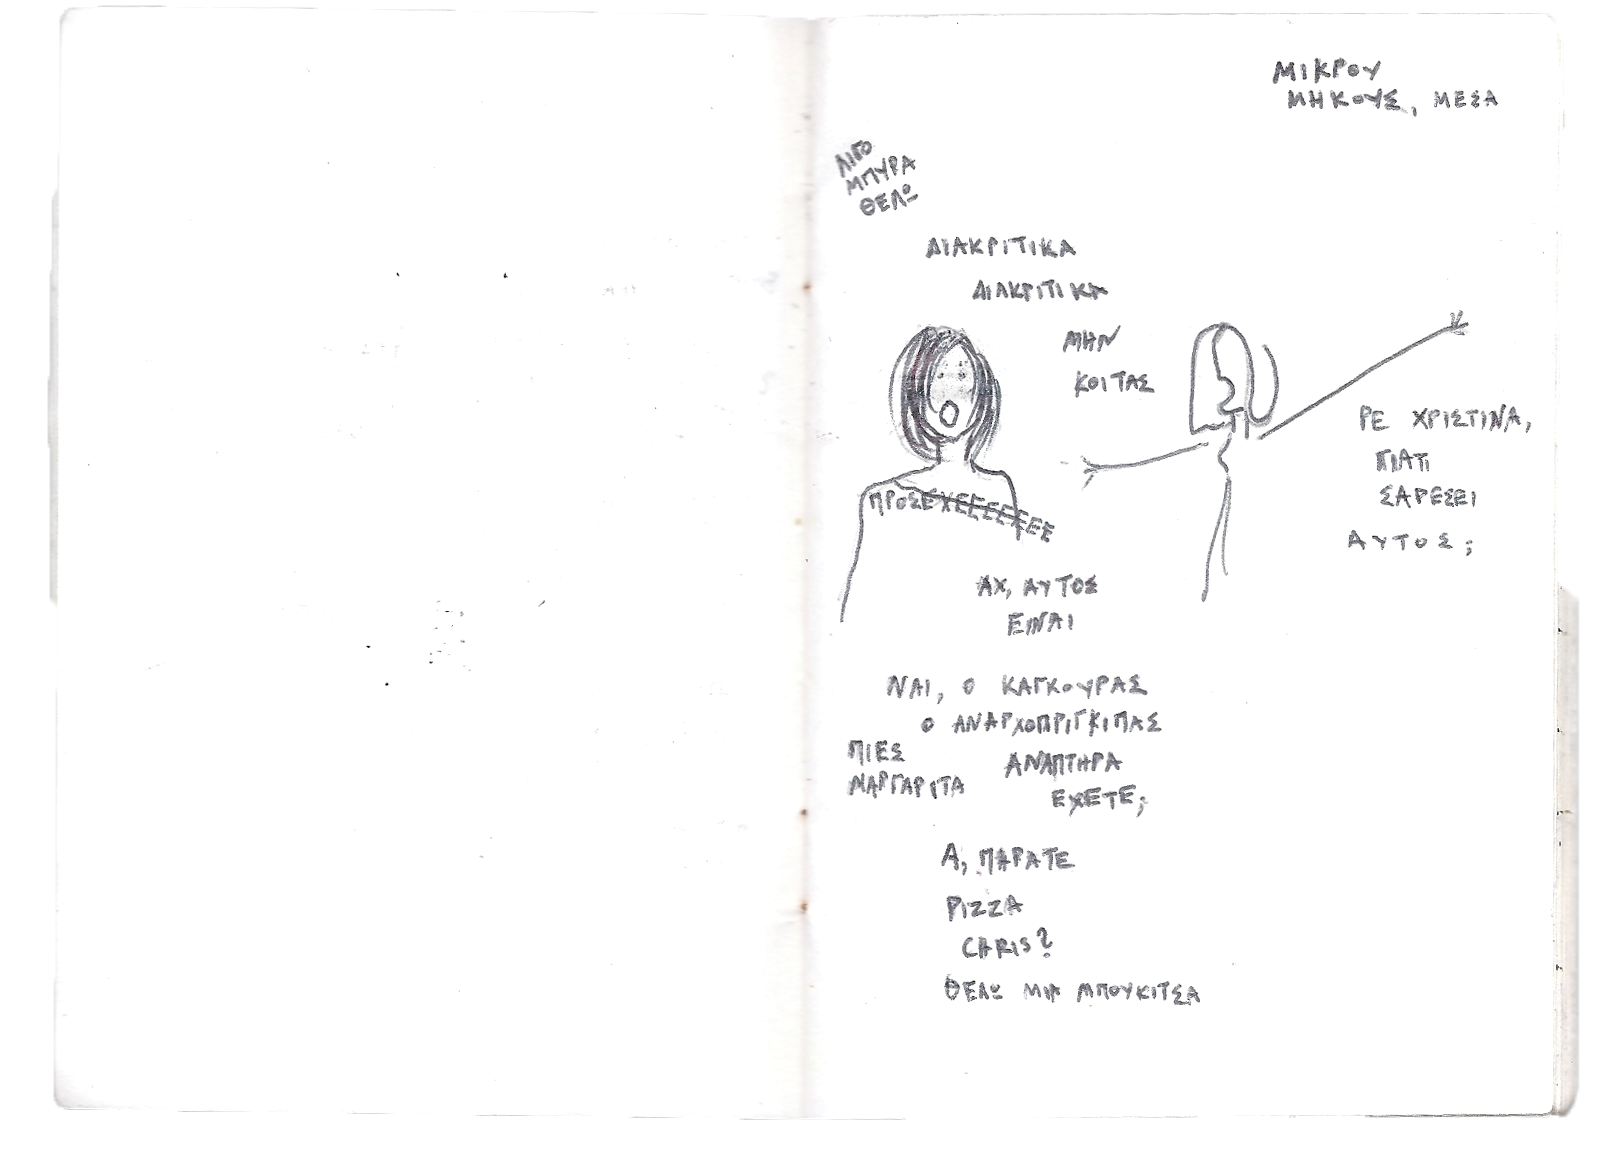 ΜΙΚΡΟΥ
ΜΗΚΟΥΣ, ΜΕΣΑ
ΛΙΓΟ
ΜΠΥΡΑ
ΘΕΛΩ
ΔΙΑΚΡΙΤΙΚΑ
ΔΙΑΚΡΙΤΙΚΑ
ΜΗΝ
ΚΟΙΤΑΣ
ΡΕ ΧΡΙΣΤΙΝΑ,
ΓΙΑΤΙ
ΣΑΡΕΣΕΙ
ΑΥΤΟΣ;
ΠΡΟΣΕΧΕΕΕΕΕΕΕ
ΑΧ, ΑΥΤΟΣ
ΕΙΝΑΙ
ΝΑΙ, Ο ΚΑΓΚΟΥΡΑΣ
Ο ΑΝΑΡΧΟΠΡΙΓΚΙΠΑΣ
ΠΙΕΣ
ΜΑΡΓΑΡΙΤΑ
ΑΝΑΠΤΗΡΑ
ΕΧΕΤΕ;
Α, ΠΑΡΑΤΕ
PIZZA
CHRIS?
ΘΕΛΩ ΜΙΑ ΜΠΟΥΚΙΤΣΑ